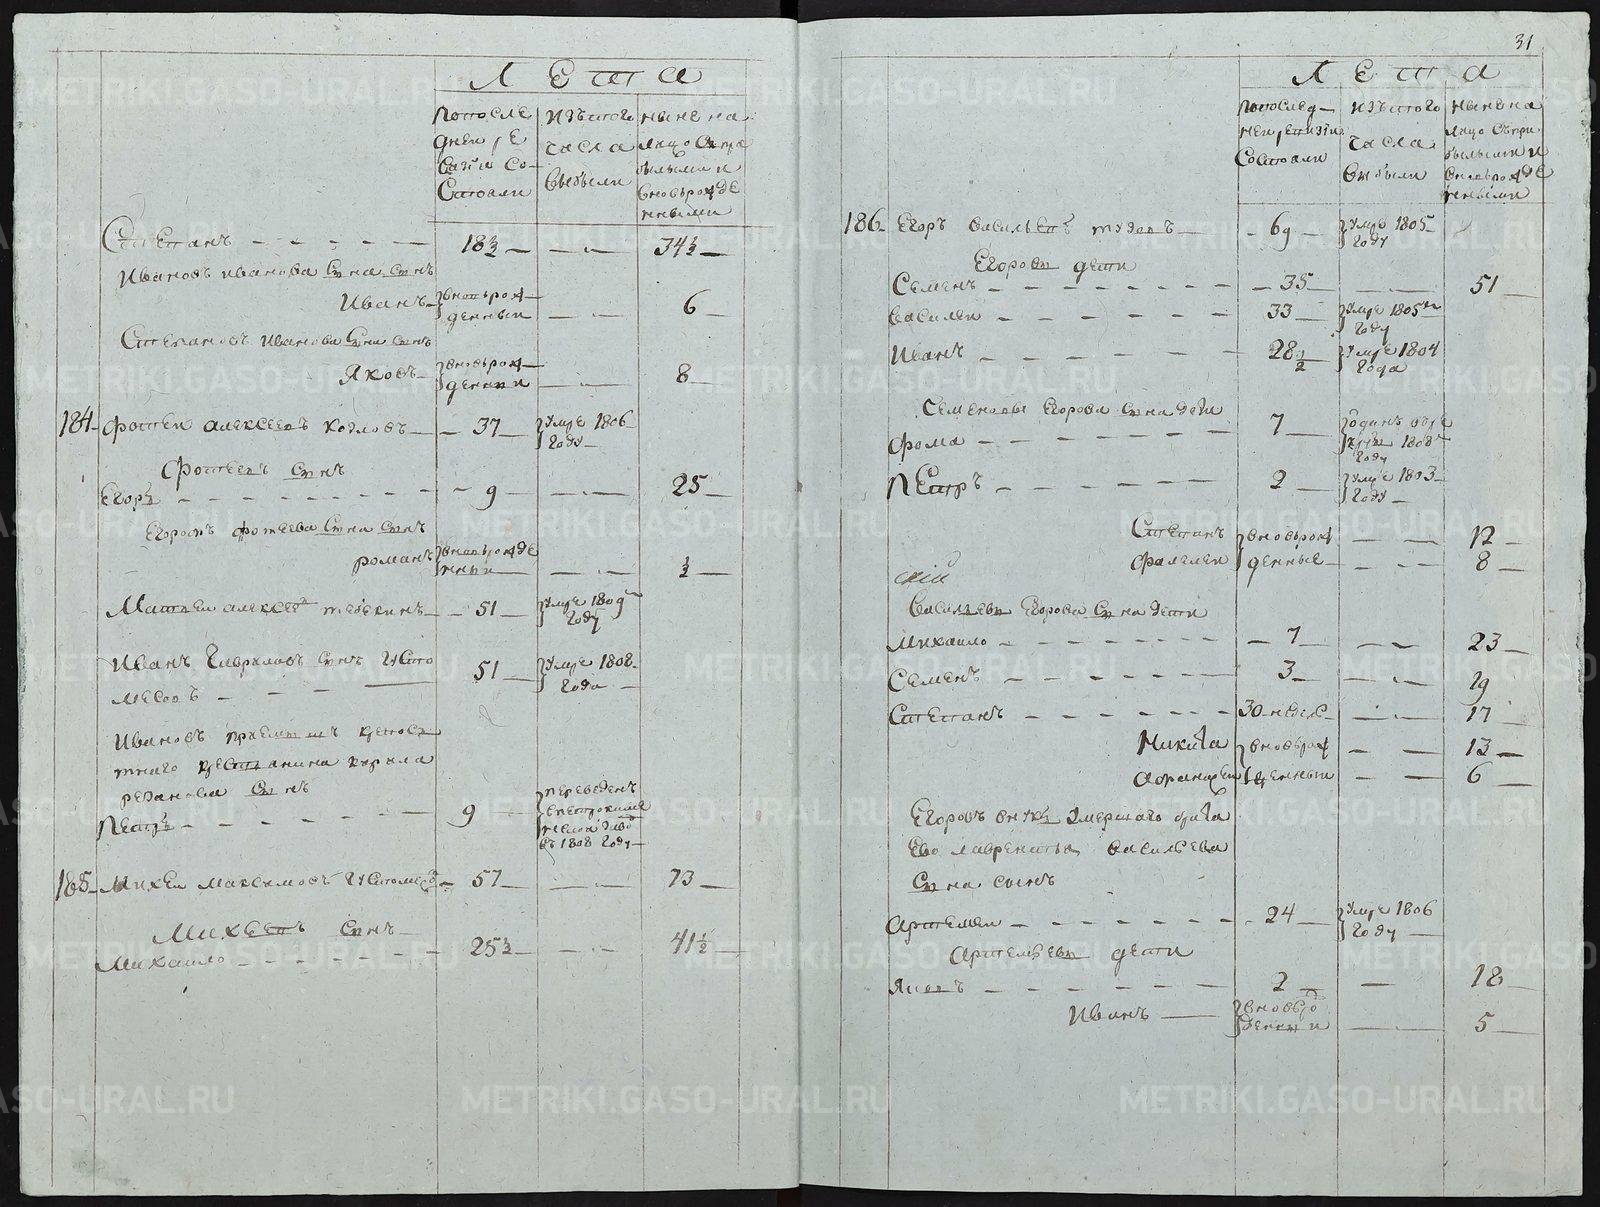 Лета
после
дней ре
визiи со
стояли
изъ того
числа
выбыли
ныне на
лицо съ при
былыми и
вновьрожде
нными
Степанъ 18½ 34½
Ивановъ Иванова сына сынъ
Иванъ вновьрож
денный 6
Степановъ Иванова сына сынъ
Яковъ вновьрож
денны и 8
184 Фотей Алексеевъ Козловъ 37 умре 1806
году
Фотеевъ сынъ
Егоръ 9 25
Егоровъ Фотеева сына сынъ
романъ вновьрожде
нный ½
Матвей алексеевъ 51 умре 1809
году
Иванъ Гавриловъ сынъ Устю 51 умре 1808
месовъ года
Ивановъ крепост
тнаго крестьянина кирила
резанова сынъ
Петръ 9 переведенъ
въ 1808 году
185 Михей Максимовъ Устюмесовъ 57 73
Михеевъ сынъ
Михаило 25½ 41½
31
Лета
послед
ней ревизiи
состояли
изъ того
числа
выбыли
ныне на
лицо съ при
былыми и
вновьрожде
нными
186 Егоръ Васильевъ 69 умре 1805
году
Егоровы дети
Семенъ 35 51
Василей 33 умре 1805
году
Иванъ 28½ умре 1804
года
Семеновы Егорова сына дети
Фома 7 1808
году
Петръ 2 умре 1803
году
Степанъ вновьрож 12
Фалелей денные 8
скiй
Васильевы Егорова сына дети
Михаило 7 23
Семенъ 3 19
Степанъ 30 недель 17
Никита вновьрож 13
денный 6
Егоровъ внукъ умершаго брата
Ево лаврентья Васильева
сына сынъ
Артемей 24 умре 1806
году
Артемьевы дети
Яковъ 2 18
Иванъ вновьро
денны и 5
METRIKI.GASO-URAL.RU